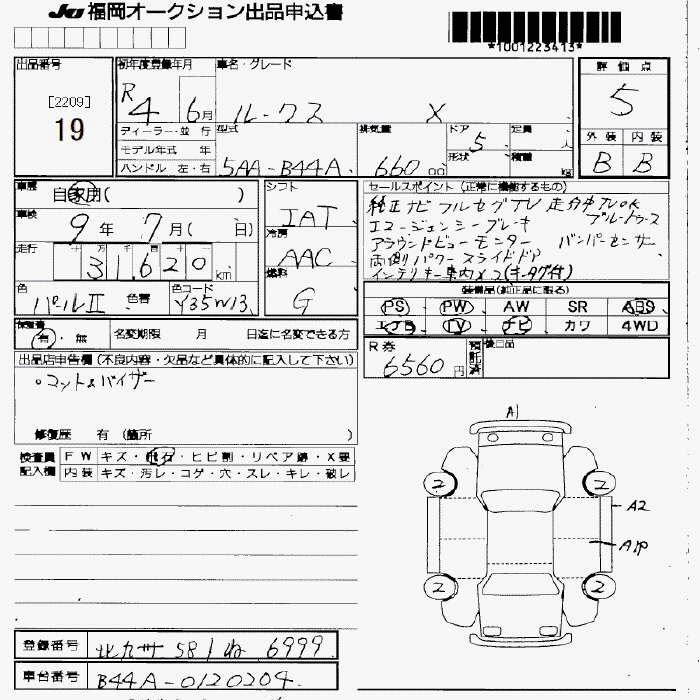 JU福岡オークション出品申込書
*1001223413*
出品番号 初年度登録年月 車名・グレード 評価点
[2209] 19
R 4 6月 ルークス X 5
ディーラー・並行 型式 排気量 ドア 定員 外装 内装
モデル年式 年 5 人 B B
ハンドル 左・右 5AA-B44A 660 cc 形状 積載 kg
車歴 自家用( ) シフト セールスポイント(正常に機能するもの)
車検 9年 7月( 日) IAT 純正ナビ フルセグTV 走行中TVOK
冷房 エマージェンシーブレーキ ブルートゥース
走行 31,620km AAC アラウンドビューモニター バンパーセンサー
燃料 両側パワースライドドア
色 パールII 色替 色コード Y35W13 G インテリキー案内×2(キータグ付)
装備品(純正品に限る)
PS PW AW SR ABS
エアB TV ナビ カワ 4WD
保証書 有・無 名変期限 月 日迄に名変できる方
R券 6560円 預託済 後日品
出品店申告欄(不良内容・欠品など具体的に記入して下さい)
。マット&バイザー
修復歴 有(箇所 )
検査員記入欄 FW キズ・飛石・ヒビ割・リペア跡・X要
内装 キズ・汚レ・コゲ・穴・スレ・キレ・破レ
A1
2 2
A2
A1P
2 2
登録番号 北九州 581 ね 6999
車台番号 B44A-0120204